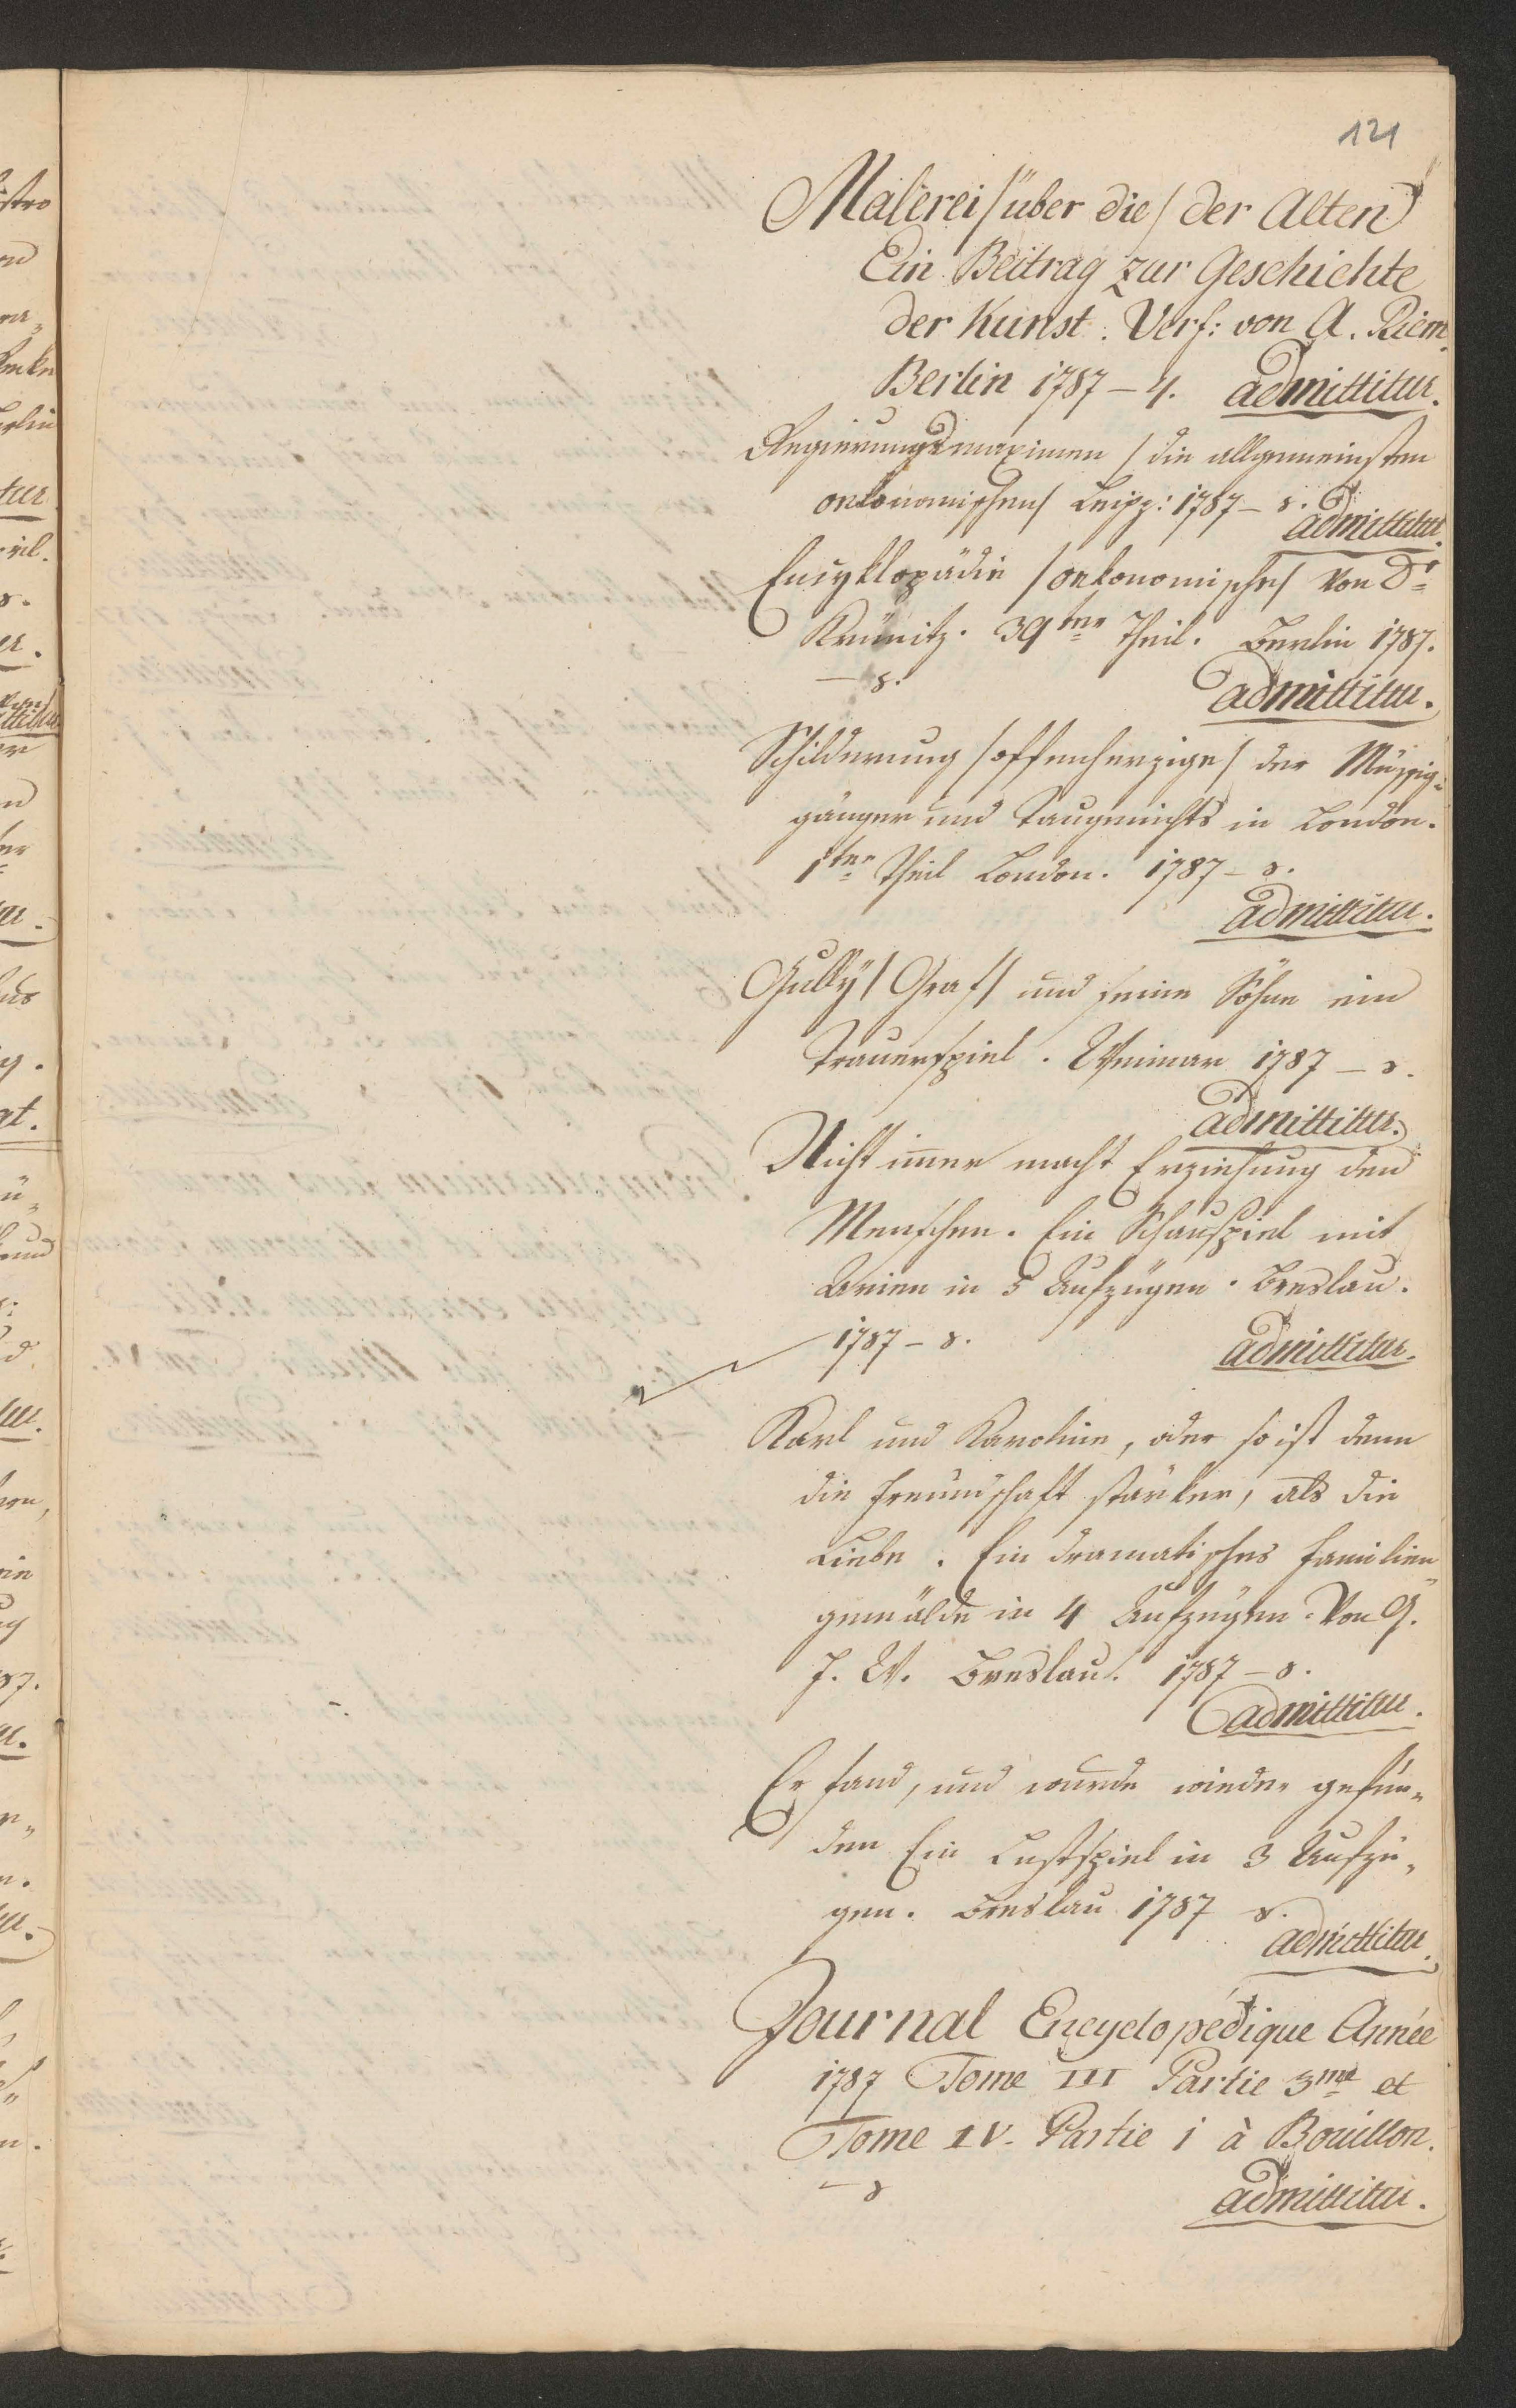 121
Malerei /über die/ der Alten
Ein Beitrag zur Geschichte
der Kunst. Verf: von A. Riem.
Berlin 1787 – 4. admittitur.
Regierungsmaximen /die allgemeinsten
oekonomischen/ Leipz: 1787 – 8.
admittitur.
Encyklopädie /oekonomische/ von Dr
Krünitz. 39ter Theil. Berlin 1787.
– 8. admittitur.
Schilderung /offenherzige/ der Müssig-
gänger und Taugenichts in London.
1ter Theil London. 1787 – 8.
admittitur.
/Graf/ und seine Söhne ein
Trauerspiel. Weimar 1787 – 8.
admittitur.
Nicht immer macht Erziehung den
Menschen. Ein Schauspiel mit
Arien in 5 Aufzügen. Breslau.
1787 – 8. admittitur.
Karl und Karoline, oder so ist denn
die Freundschaft stärker, als die
Liebe. Ein dramatisches Familien„
gemälde in 4 Aufzügen. Von G.
J. W. Breslau. 1787 – 8.
admittitur.
Er fand, und wurde wieder gefun„
den Ein Lustspiel in 3 Aufzü„
gen. Breslau 1787 8.
admittitur.
Journal Encyclopédique Année
1787 Tome III Partie 3me et
Tome IV. Partie 1 à Bouillon.
– 8 admittitur.